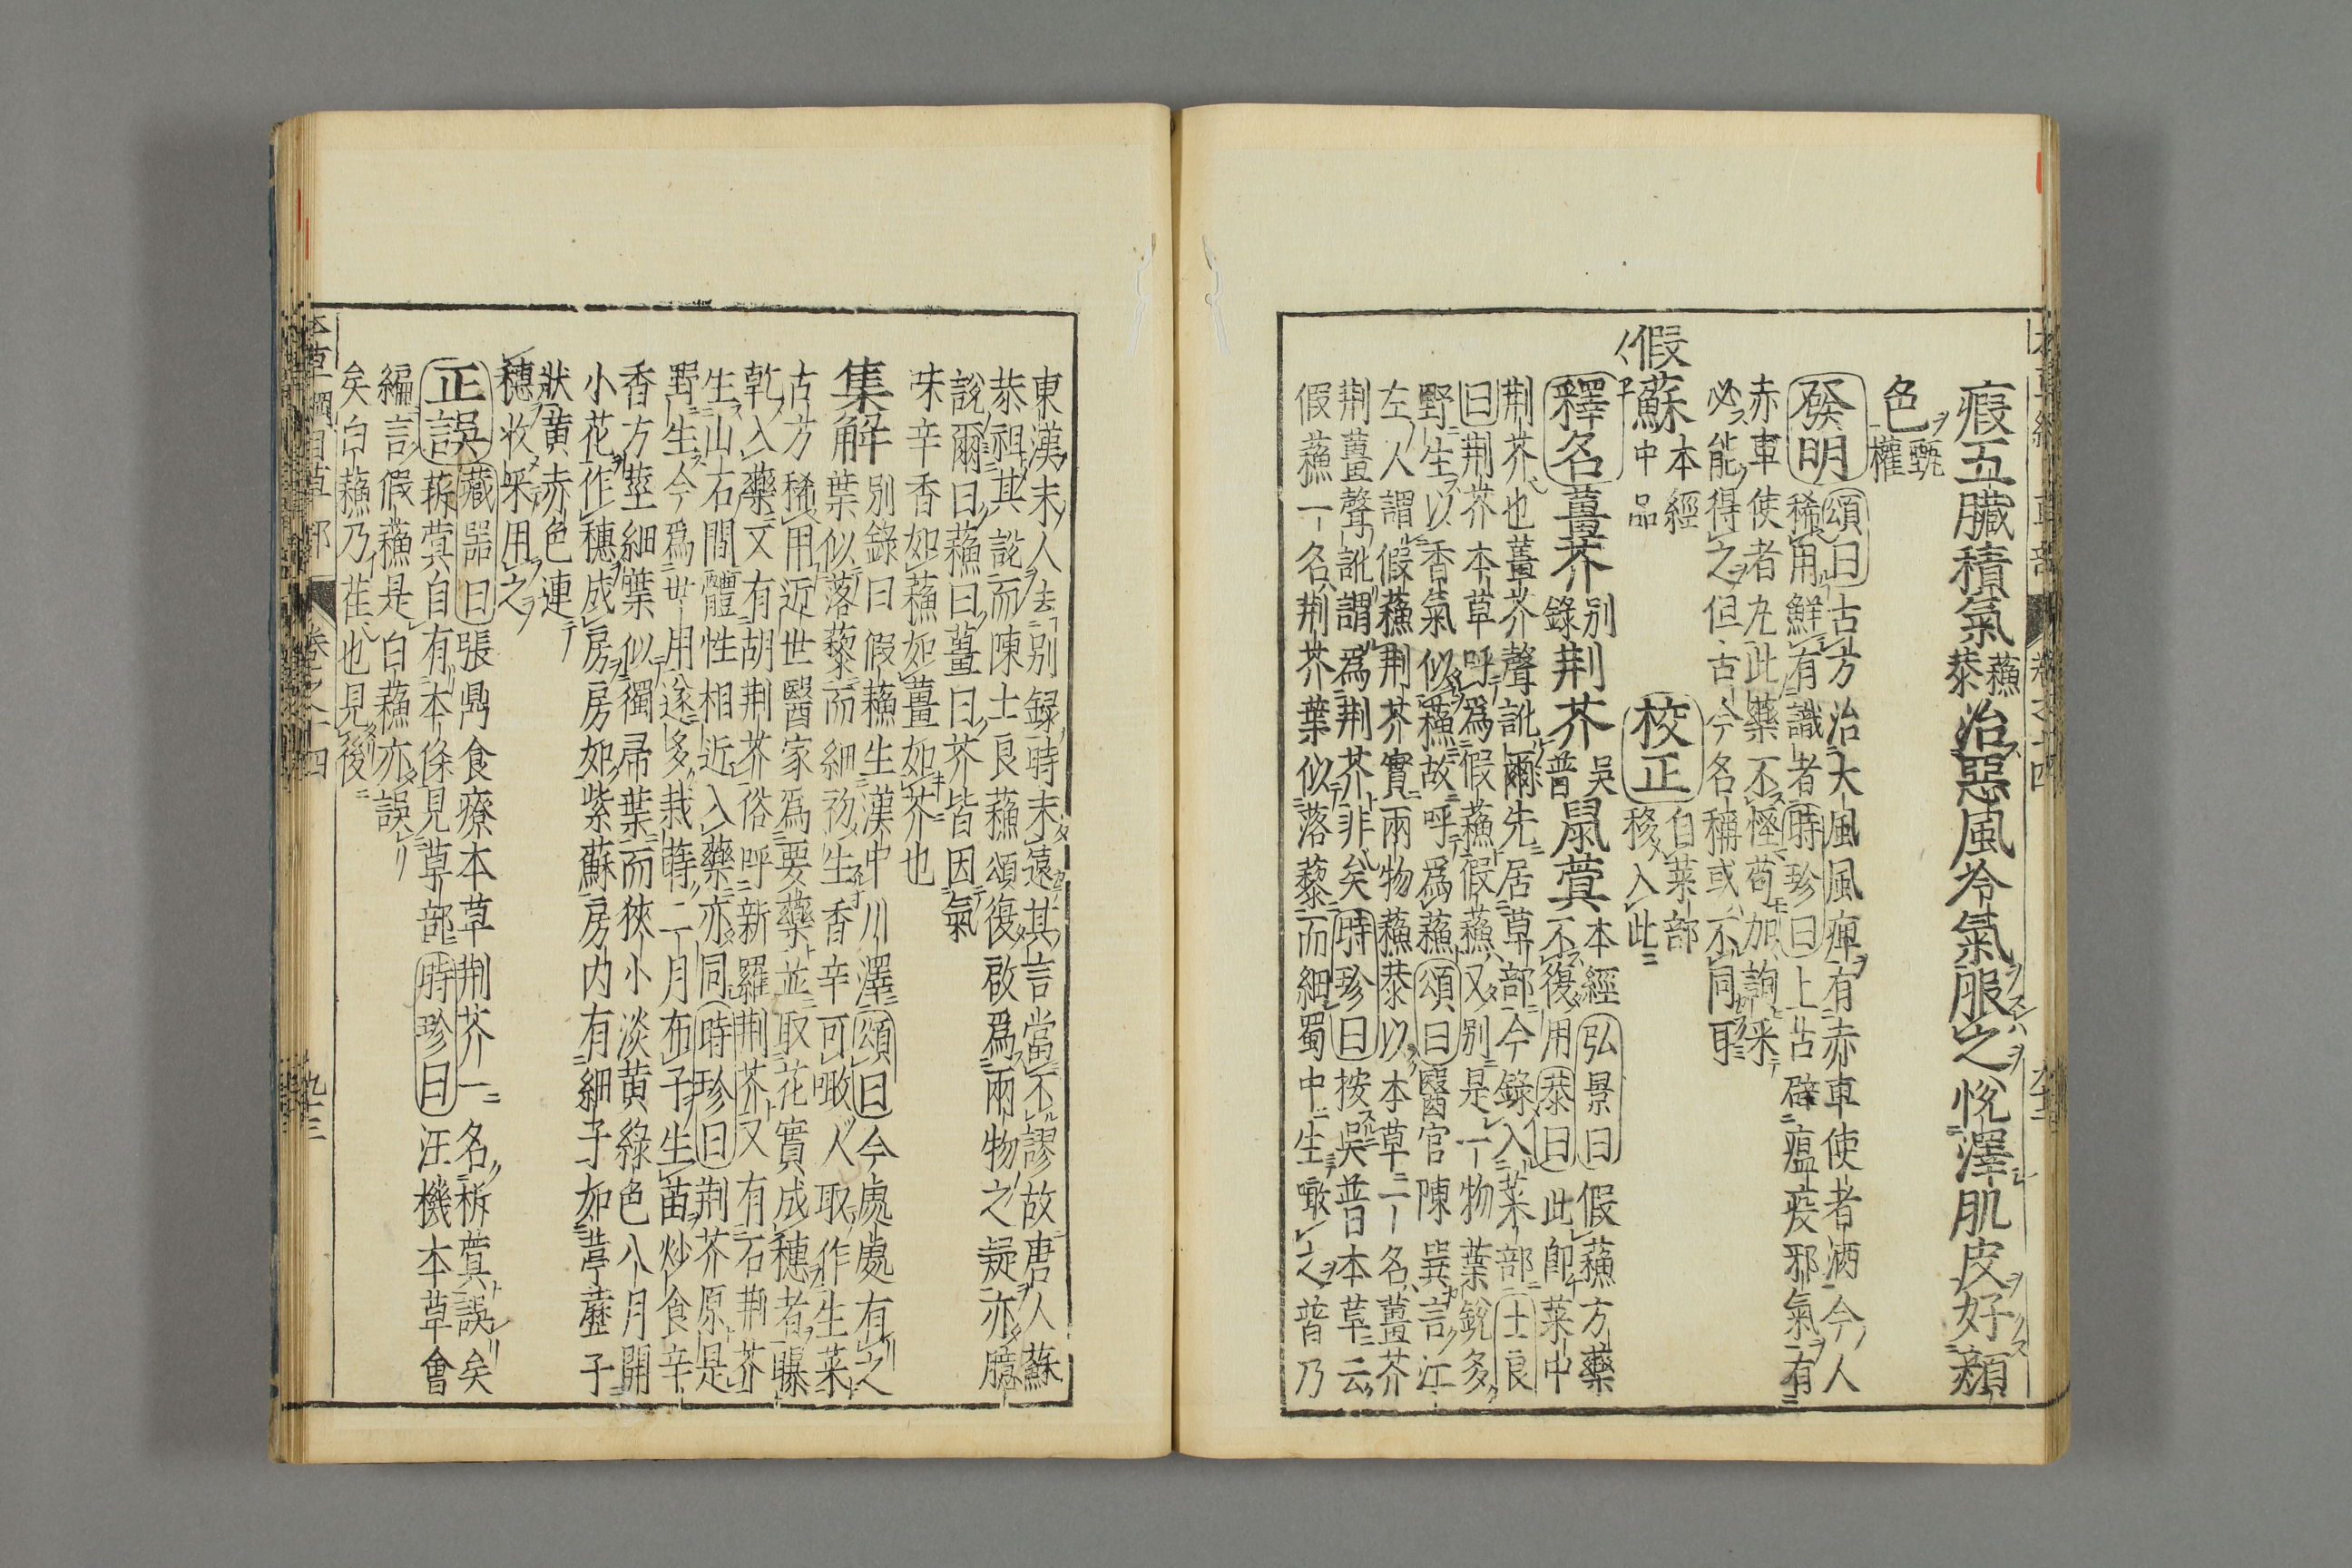 瘕五臟積氣蘓恭治惡風冷氣服之悅澤肌皮好顏
色甄權
發明頌曰古方治大風風痺有赤車使者酒今人
稀用鮮有識者時珍曰上古辟瘟疫邪氣有
赤車使者丸此藥不怪苟加詢采
必能得之但古今名稱或不同耳
假蘇本經中品 校正自菜部移入此
釋名薑芥别錄荆芥吳普鼠蓂本經弘景曰假蘓方藥
不復用恭曰此即菜中
荆芥也薑芥聲訛爾先居草部今錄入菜部士良
曰荆芥本草呼爲假蘓假蘓又别是一物葉銳多
野生以香氣似蘓故呼爲蘓頌曰醫官陳巽言江
左人謂假蘓荆芥實兩物蘓恭以本草一名薑芥
荆薑聲訛謂爲荆芥非矣時珍曰按吳普本草云
假蘓一名荆芥葉似落藜而細蜀中生噉之普乃
東漢末人去别録時未遠其言當不謬故唐人蘇
恭祖其說而陳士良蘓頌復啟爲兩物之疑亦臆
說爾曰蘓曰薑曰芥皆因氣
味辛香如蘓如薑如芥也
集解別錄曰假蘓生漢中川澤頌曰今處處有之
葉似落藜而細初生香辛可噉人取作生菜
古方稀用近世醫家爲要藥並取花實成穗者曝
乾入藥又有胡荆芥俗呼新羅荆芥又有石荆芥
生山石間體性相近入藥亦同時珍曰荆芥原是
野生今爲世用遂多栽蒔二月布子生苗炒食辛
香方莖細葉似獨帚葉而狹小淡黄綠色八月開
小花作穗成房房如紫蘇房内有細子如葶藶子
狀黄赤色連
穗收采用之
正誤藏器曰張鼎食療本草荆芥一名析蓂誤矣
菥蓂自有本條見草部時珍曰汪機本草會
編言假蘓是白蘓亦誤
矣白蘓乃荏也見後
本草綱目草部 卷之十四 九十三